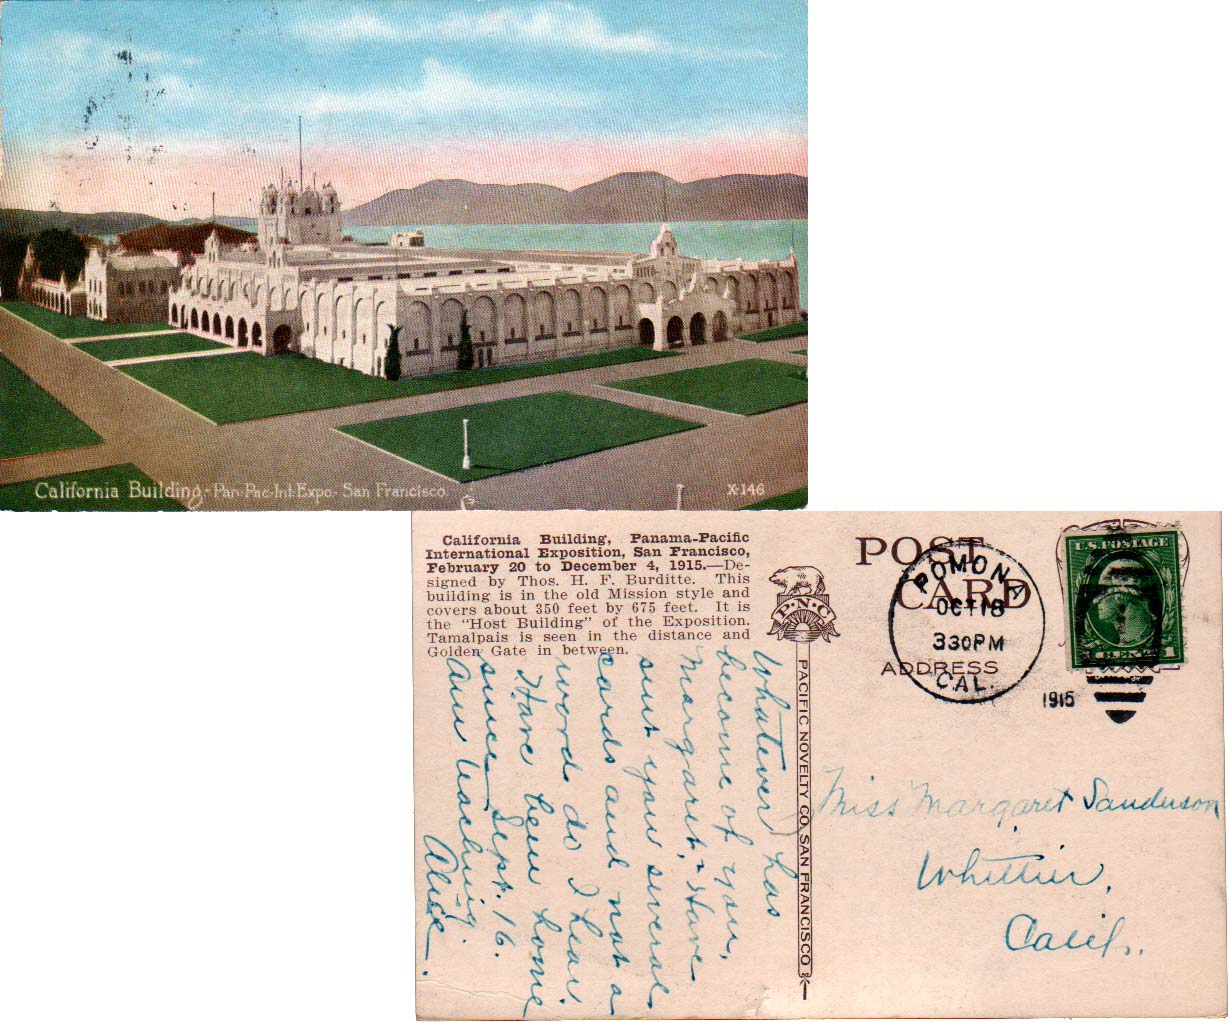 California Building - Pan-Pac-Int-Expo- San Francisco.
X-146
California Building, Panama-Pacific
International Exposition, San Francisco,
February 20 to December 4, 1915.—De-
signed by Thos. H. F. Burditte. This
building is in the old Mission style and
covers about 350 feet by 675 feet. It is
the "Host Building" of the Exposition.
Tamalpais is seen in the distance and
Golden Gate in between.
P·N·C
PACIFIC NOVELTY CO. SAN FRANCISCO
POST
CARD
ADDRESS
POMONA
OCT 18
330PM
CAL.
1915
U.S. POSTAGE
1
Whatever has
become of you,
Margaret, Have
sent you several
cards and not a
word do I hear.
Have been home
since Sept. 16.
Am teaching.
Alice.
Miss Margaret Sanderson
Whittier,
Calif.